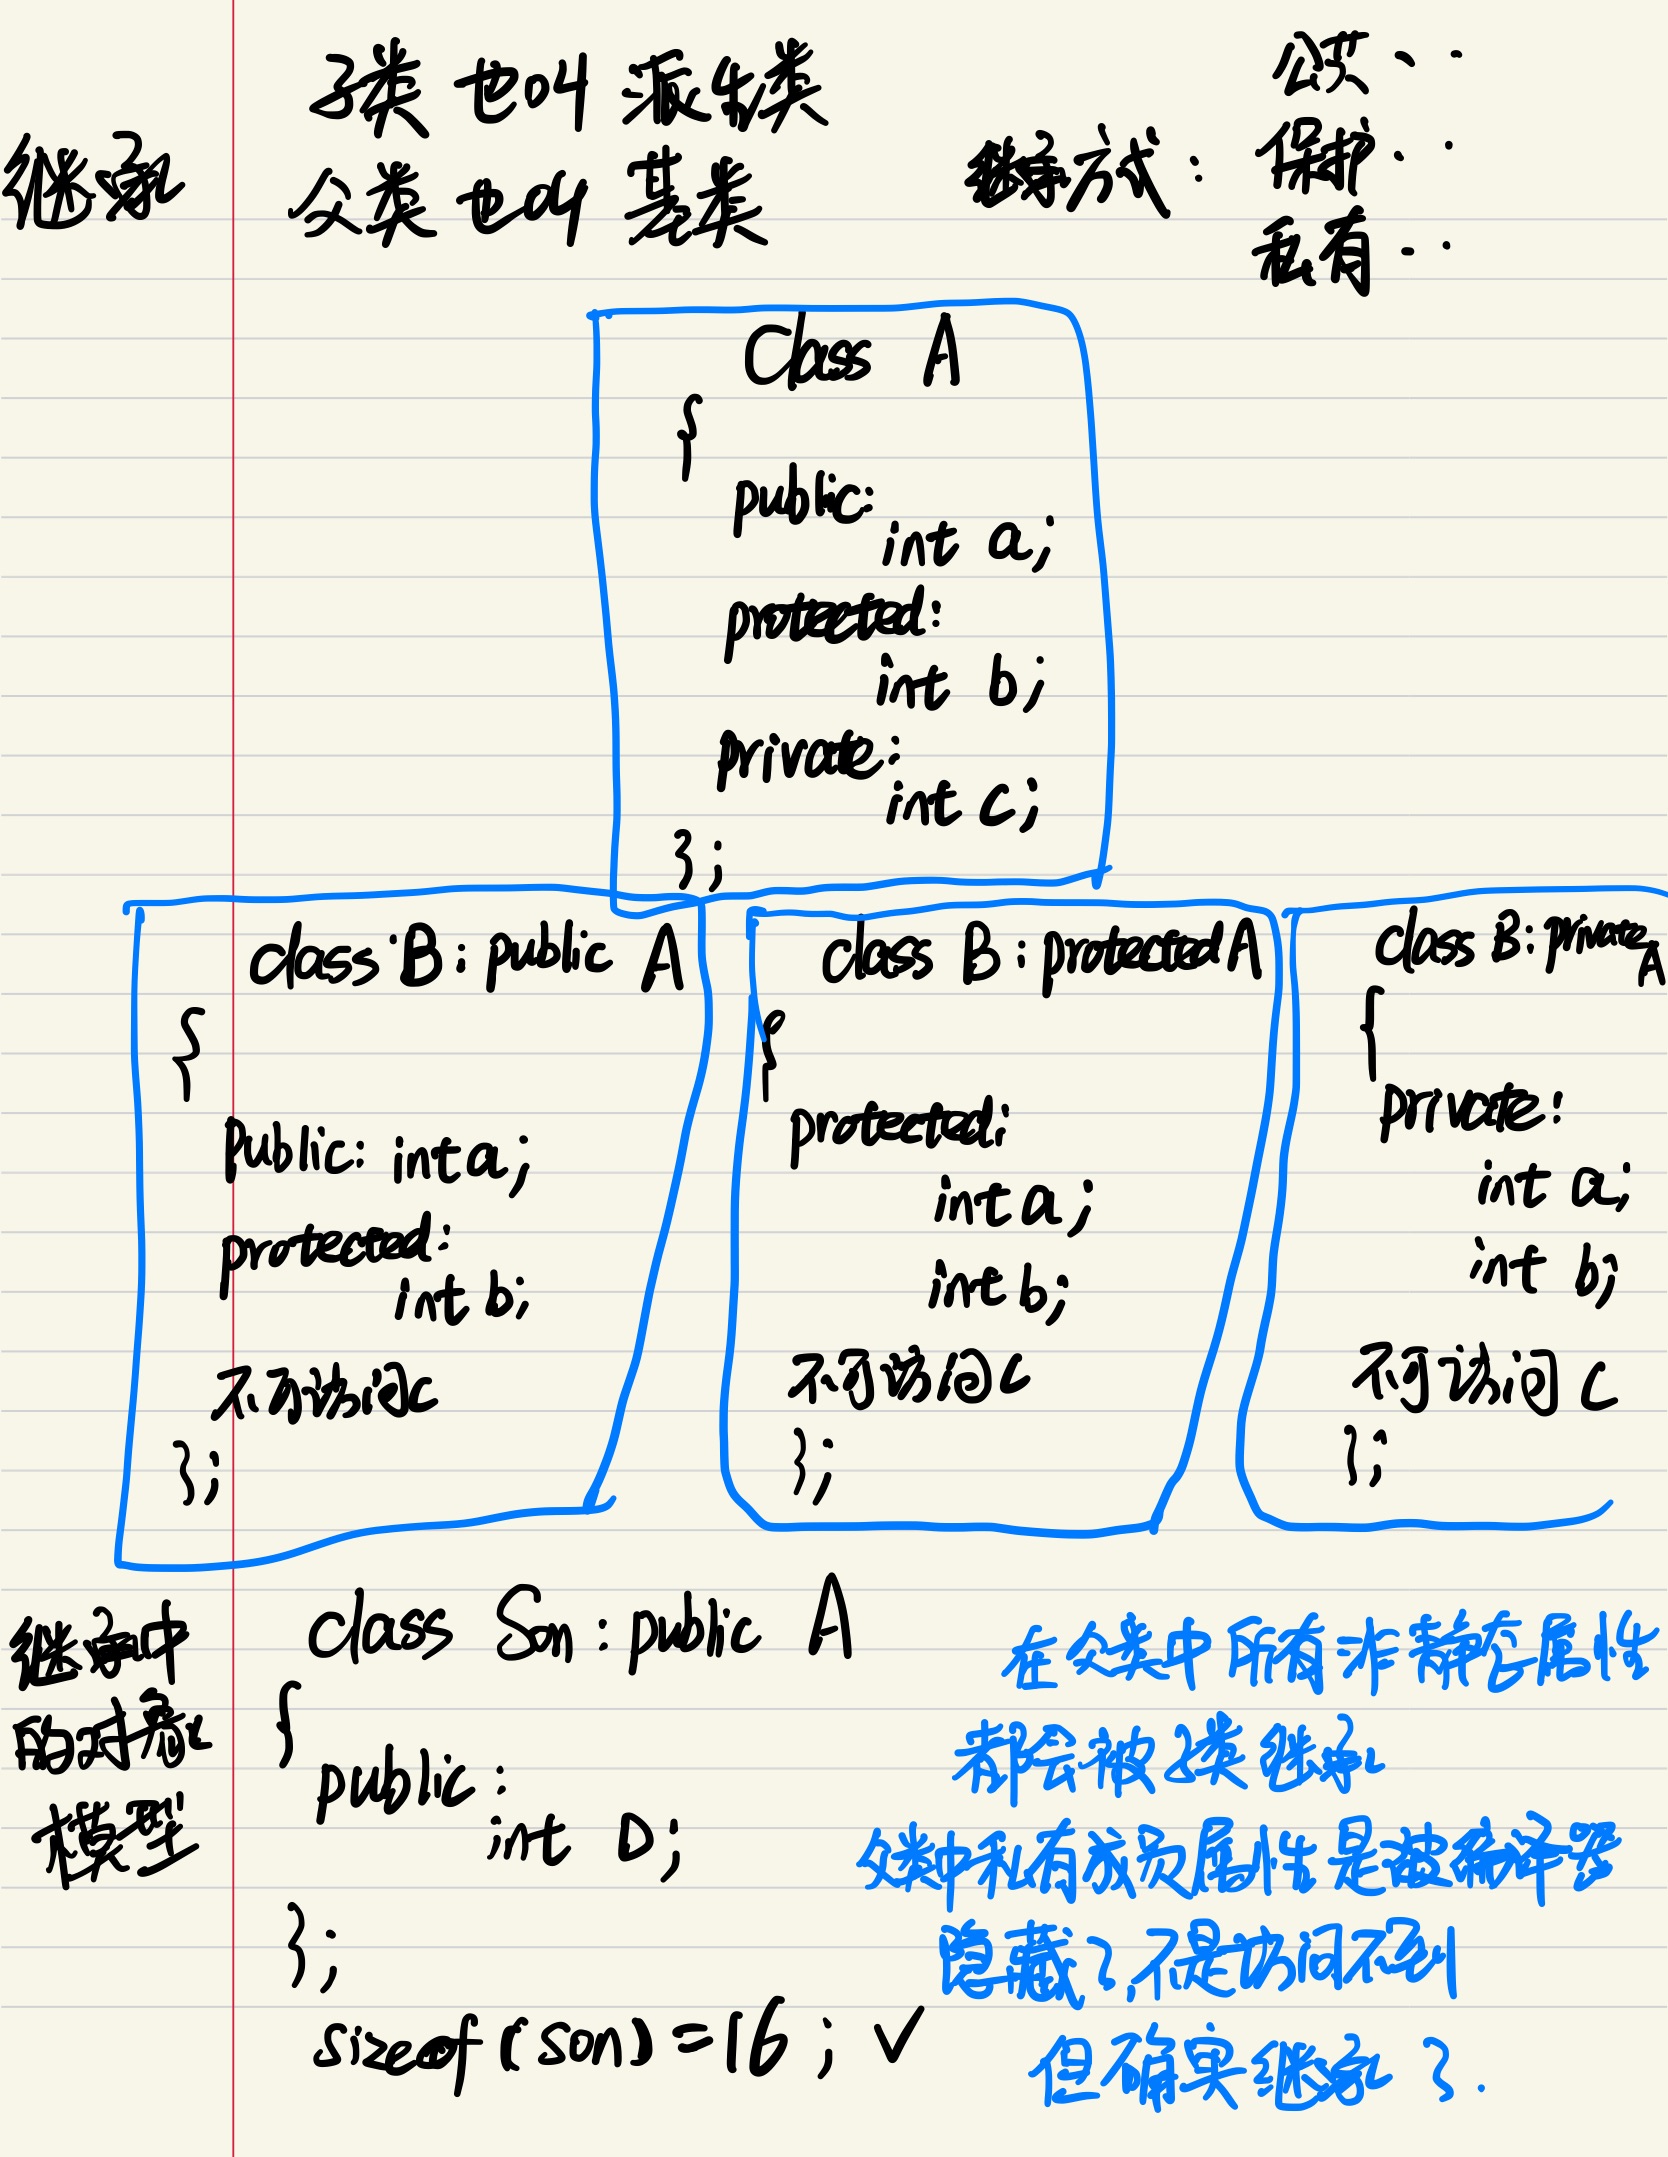 继承
子类 也叫 派生类
父类 也叫 基类
继承方式：
公共··
保护··
私有··
Class A
{
public:
int a;
protected:
int b;
private:
int c;
};
class B: public A
{
Public: int a;
protected:
int b;
不可访问c
};
class B: protected A
{
protected:
int a;
int b;
不可访问c
};
class B: private A
{
private:
int a;
int b;
不可访问c
};
继承中
的对象
模型
class Son: public A
{
public:
int D;
};
sizeof(son)=16; ✓
在父类中所有非静态属性
都会被子类继承
父类中私有成员属性是被编译器
隐藏了,不是访问不到
但确实继承了.